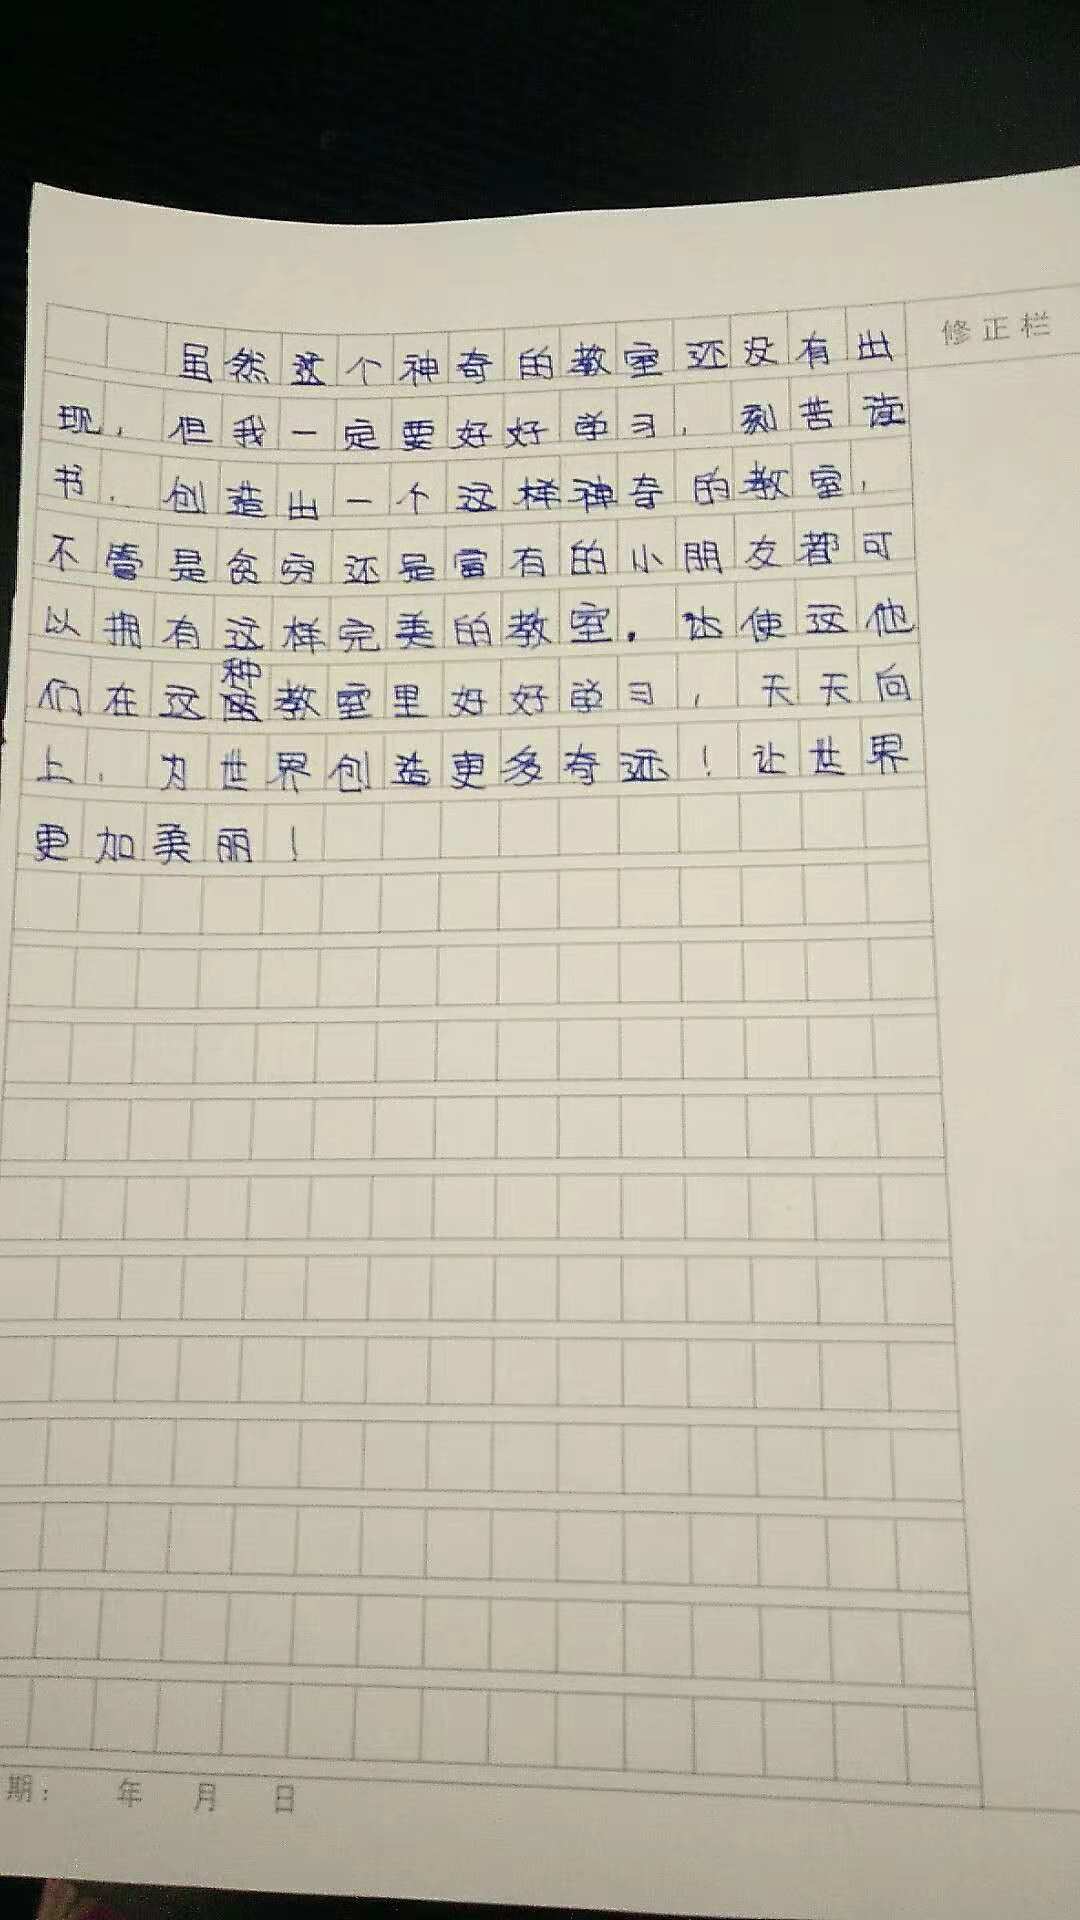 修正栏
虽然这个神奇的教室还没有出
现，但我一定要好好学习，刻苦读
书，创造出一个这样神奇的教室，
不管是贫穷还是富有的小朋友都可
以拥有这样完美的教室。达使这他
们在这种教室里好好学习，天天向
上，为世界创造更多奇迹！让世界
更加美丽！
期： 年 月 日